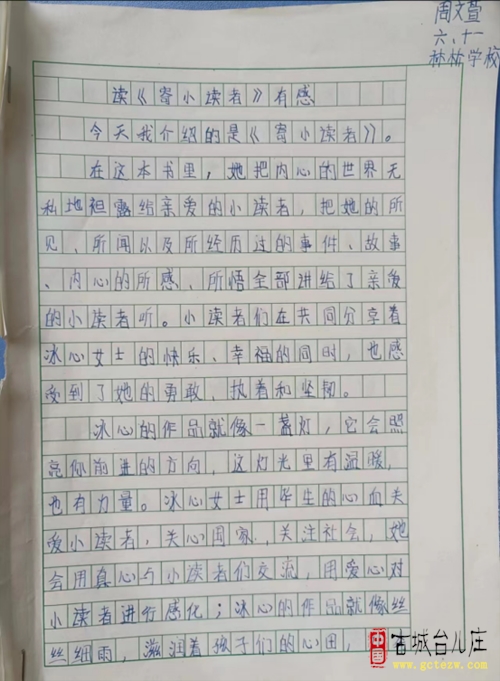 周文萱
六、十一
林林学校
读《寄小读者》有感
今天我介绍的是《寄小读者》。
在这本书里，她把内心的世界无
私地袒露给亲爱的小读者，把她的所
见、所闻以及所经历过的事件、故事
、内心的所感、所悟全部讲给了亲爱
的小读者听。小读者们在共同分享着
冰心女士的快乐、幸福的同时，也感
受到了她的勇敢、执着和坚韧。
冰心的作品就像一盏灯，它会照
亮你前进的方向，这灯光里有温暖，
也有力量。冰心女士用毕生的心血关
爱小读者，关心国家，关注社会，她
会用真心与小读者们交流，用爱心对
小读者进行感化；冰心的作品就像丝
丝细雨，滋润着孩子们的心田，
中國
古城台儿庄
www.gctezw.com